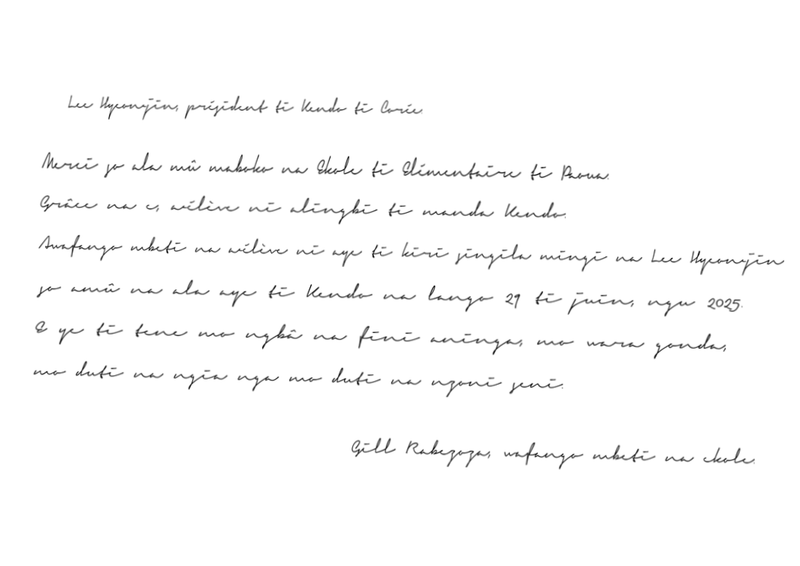 Lee Hyeonjin, président ti Kendo ti Corée.
Merci zo ala mû maboko na Ekole ti Elémentaire ti Paoua.
Grâce na e, aélève ni alingbi ti manda Kendo.
Awafango mbeti na aélève ni aye ti kiri singila mingi na Lee Hyeonjin
zo amû na ala aye ti Kendo na lango 29 ti juin, ngu 2025.
E ye ti tene mo ngbâ na fini aninga, mo wara gonda,
mo duti na ngia nga mo duti na nzoni seni.
Gill Rabezoza, wafango mbeti na ekole.